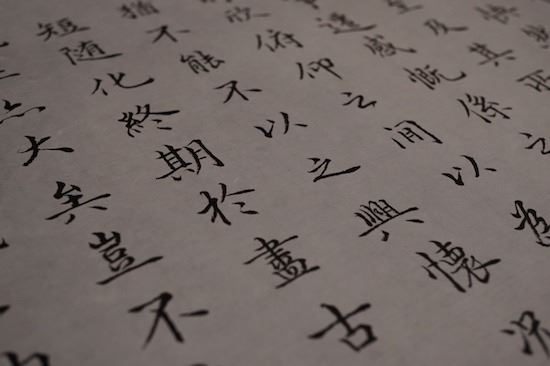 及其所
遷感慨係之
欣俯仰之間以為
猶不能不以之興懷況
短随化終期於盡古
大矣豈不